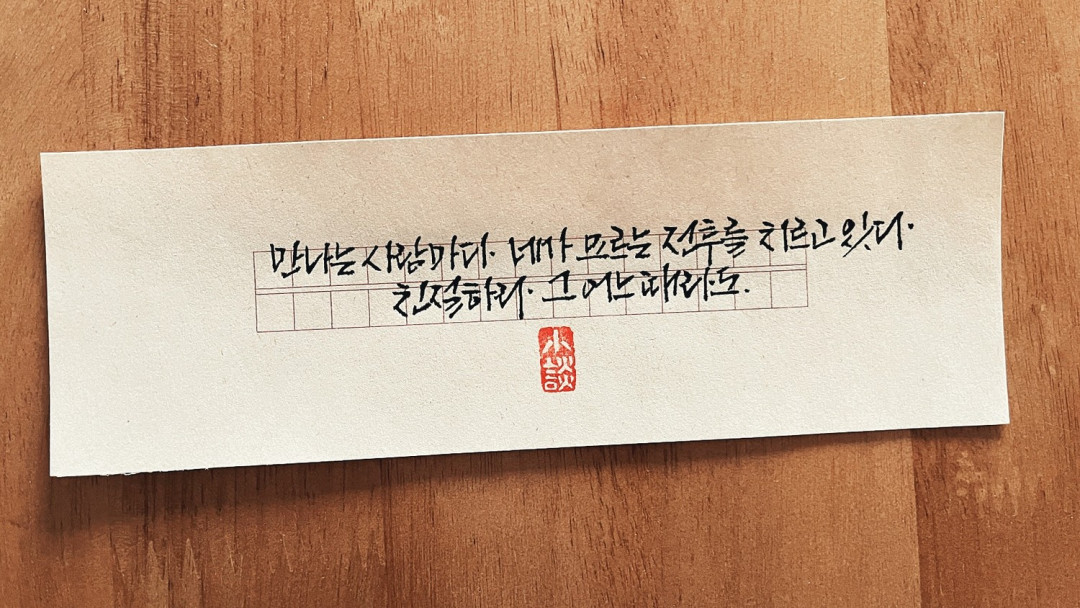 만나는 사람마다. 네가 모르는 전투를 치르고 있다.
친절하라. 그 어느 때라도.
小談